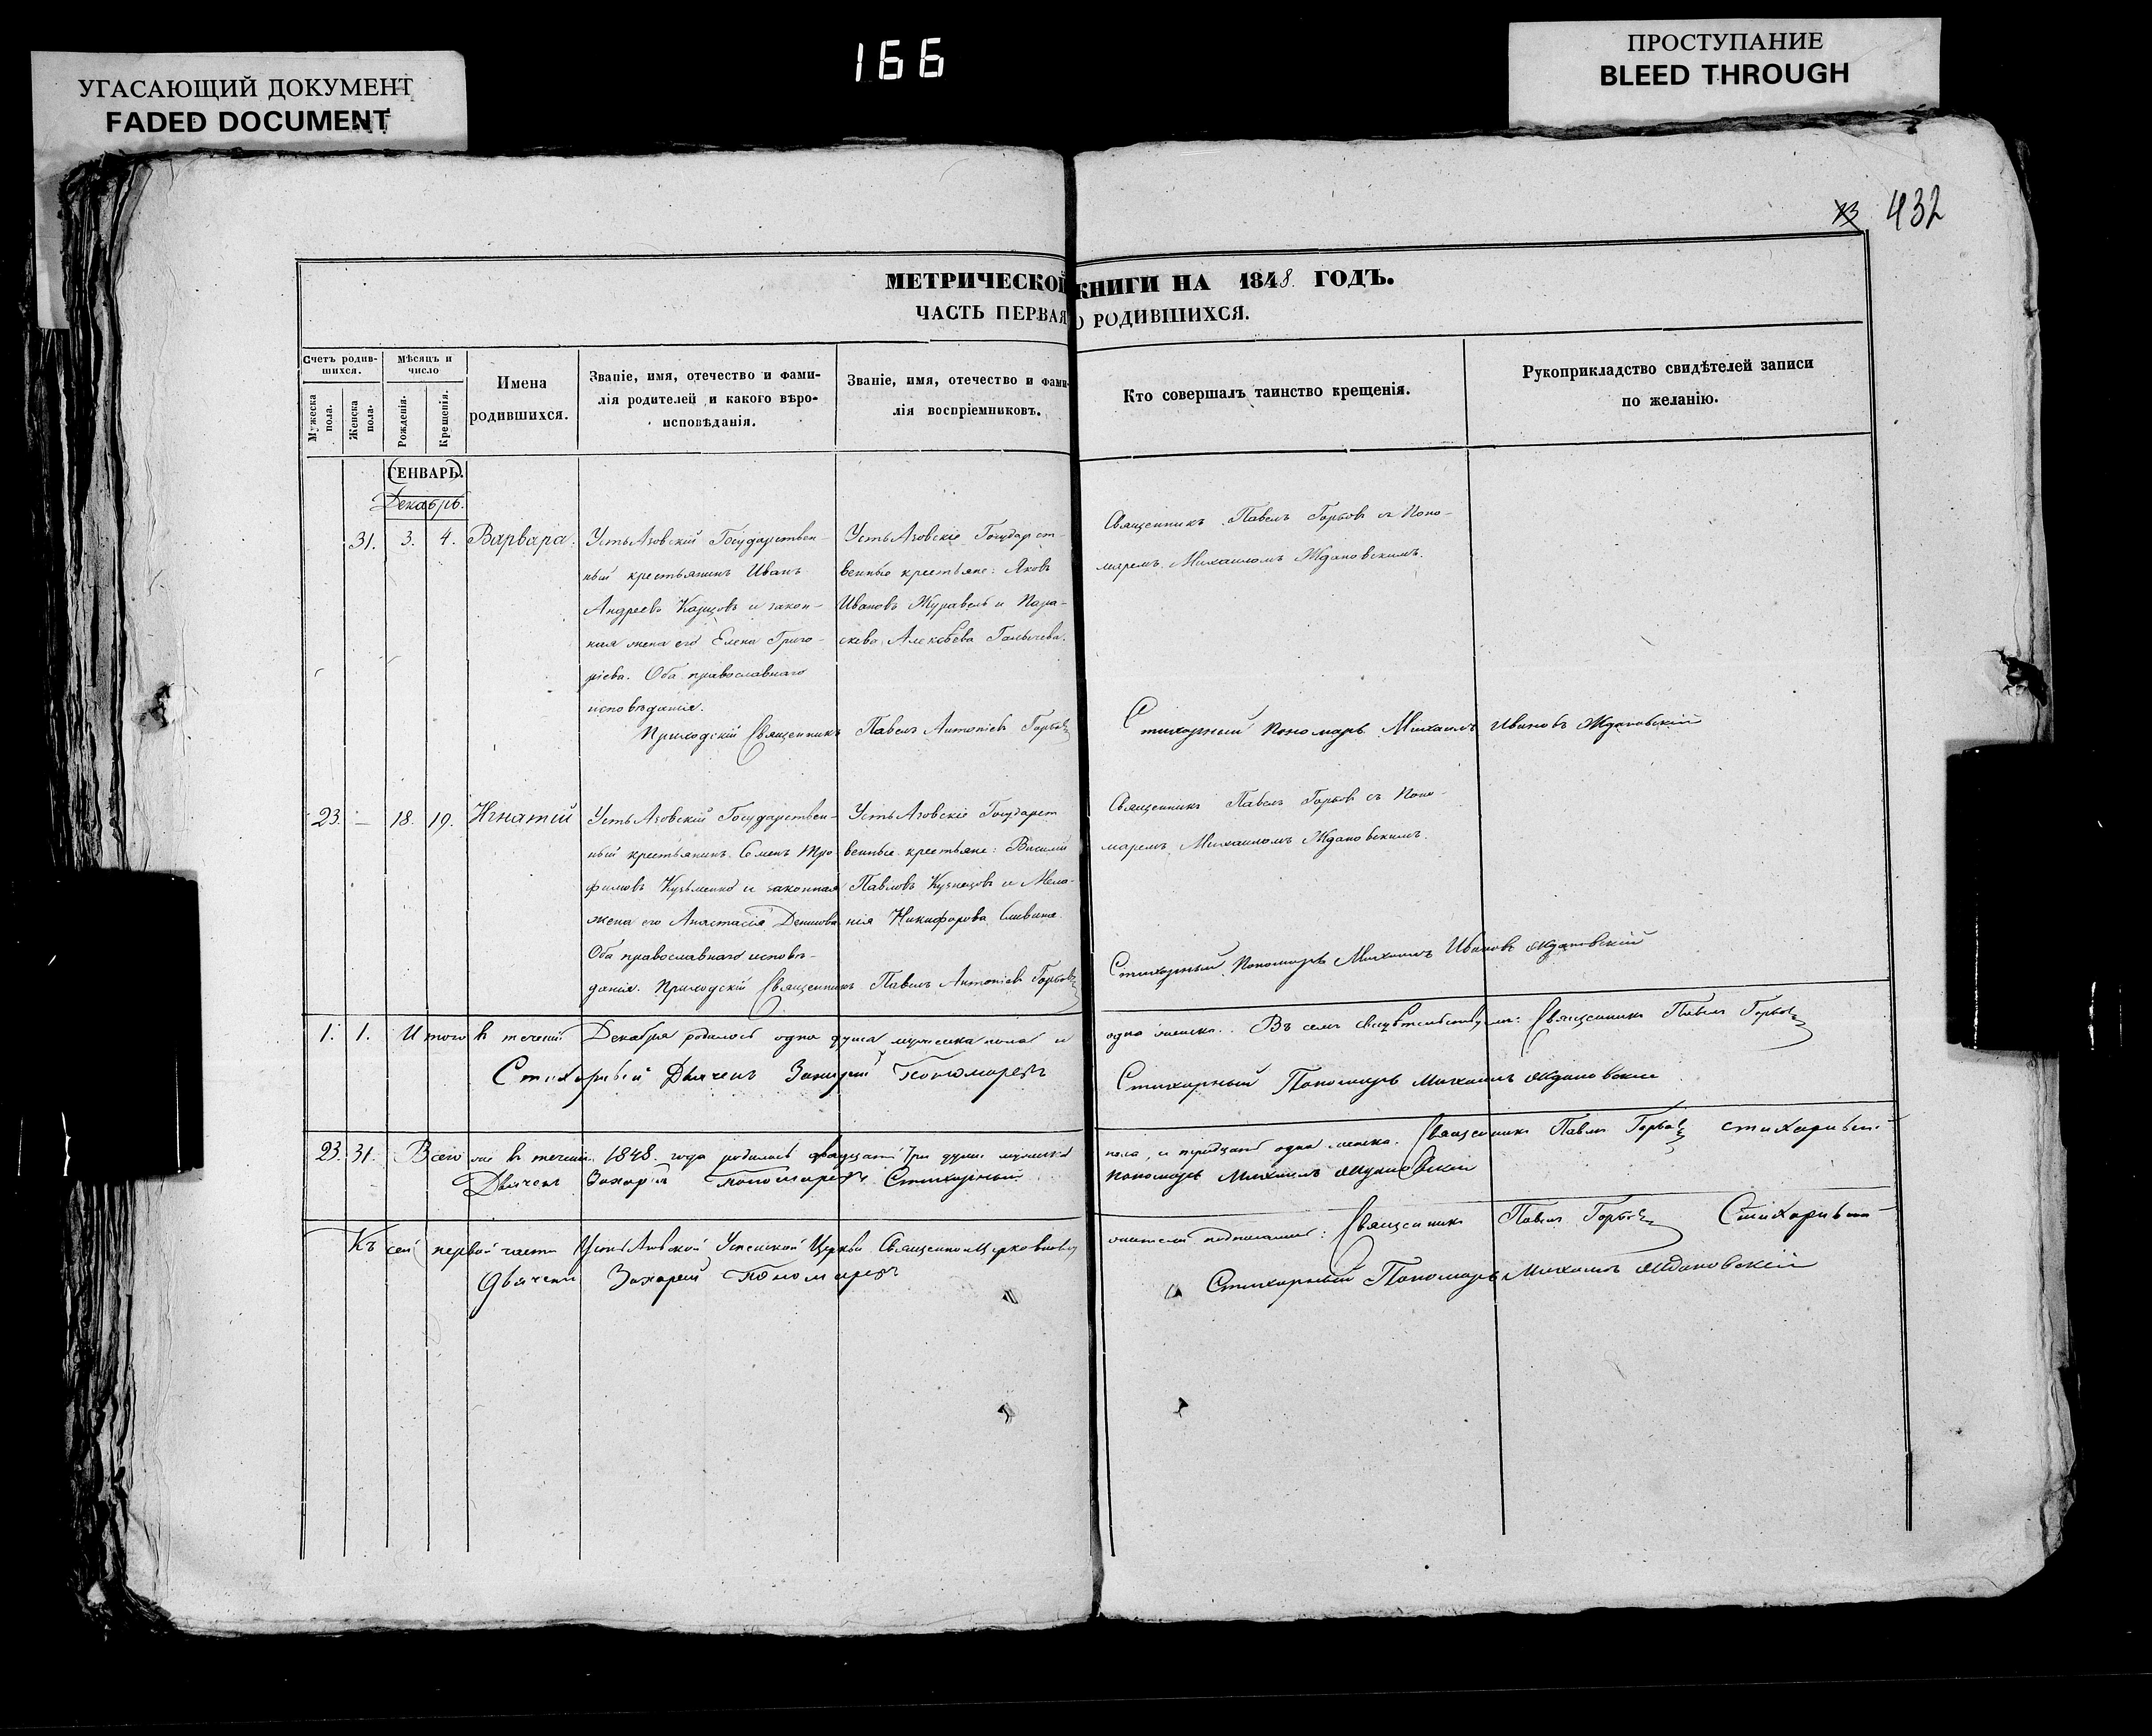 УГАСАЮЩИЙ ДОКУМЕНТ
FADED DOCUMENT
166
ПРОСТУПАНИЕ
BLEED THROUGH
432
МЕТРИЧЕСКОЙ КНИГИ НА 1848. ГОДЪ.
ЧАСТЬ ПЕРВАЯ О РОДИВШИХСЯ.
Счетъ родив-
шихся.
Мужеска пола.
Женска пола.
Мѣсяцъ и
число
Рожденія.
Крещенія.
Имена
родившихся.
Званіе, имя, отечество и фами-
лія родителей и какого вѣро-
исповѣданія.
Званіе, имя, отечество и фами-
лія воспріемниковъ.
Кто совершалъ таинство крещенія.
Рукоприкладство свидѣтелей записи
по желанію.
ГЕНВАРЬ.
Декабрь.
31. 3. 4. Варвара.
Усть Азовскій Государствен-
ный крестьянинъ Иванъ
Андреевъ и закон-
ная жена его Елена Григо-
ріева. Оба православнаго
исповѣданія.
Усть Азовскіе Государст-
венные крестьяне: Яковъ
Ивановъ Журавель и Пара-
скева Алексѣева
Священникъ Павелъ Горбовъ съ Поно-
маремъ Михаиломъ Ждановскимъ.
Приходскій Священникъ Павелъ Антоніевъ Горбовъ
Стихарный Пономарь Михаилъ Ивановъ Ждановскій
23. — 18. 19. Игнатій
Усть Азовскій Государствен-
ный крестьянинъ Семенъ Тро-
фимовъ Кузьменко и законная
жена его Анастасія Денисова
Оба православнаго исповѣ-
данія.
Усть Азовскіе Государст
венные крестьяне: Василій
Павловъ Кузнецовъ и Мела-
нія Никифорова
Священникъ Павелъ Горбовъ съ Поно-
маремъ Михаиломъ Ждановскимъ.
Приходскій Священникъ Павелъ Антоніевъ Горбовъ
Стихарный Пономарь Михаилъ Ивановъ Ждановскій
1. 1. Итого въ теченіи Декабря родилось одна душа мужеска пола и одна женска. Въ семъ свидѣтельствуемъ: Священникъ Павелъ Горбовъ
Стихарный Дьячекъ Захарій Пономаревъ Стихарный Пономарь Михаилъ Ждановскій
23. 31. Всего же въ теченіи 1848. года родилось двадцать три души мужеска пола, и тридцать одна женска. Священникъ Павелъ Горбовъ стихарный
Дьячекъ Захарій Пономаревъ Стихарный Пономарь Михаилъ Ждановскій
Къ сей первой части Усть Азовской Успенской Церкви Священноцерковнослужители подписались: Священникъ Павелъ Горбовъ Стихарный
Дьячекъ Захарій Пономаревъ Стихарный Пономарь Михаилъ Ждановскій